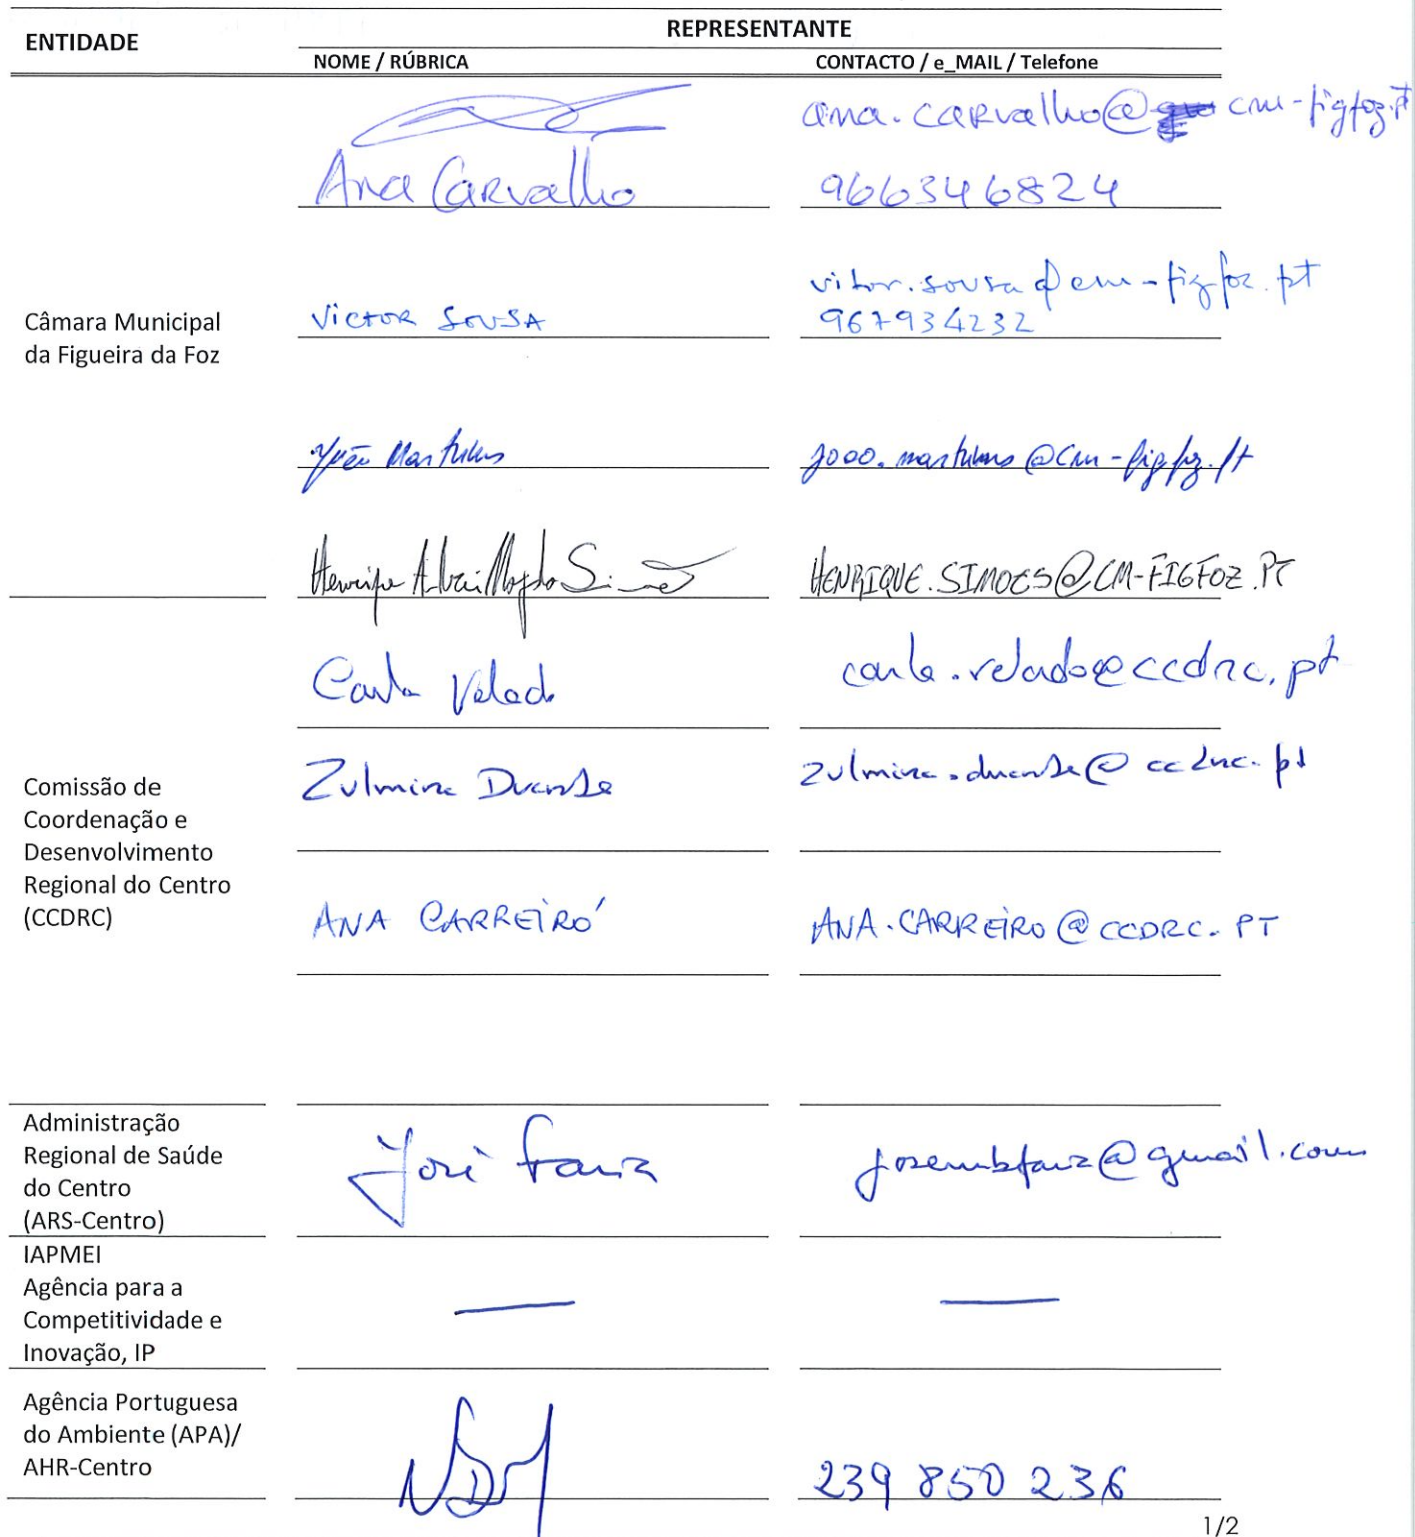 ENTIDADE
REPRESENTANTE
NOME / RÚBRICA
CONTACTO / e_MAIL / Telefone
Câmara Municipal
da Figueira da Foz
Ana Carvalho
ana.carvalho@cm-figfoz.pt
966346824
Victor Sousa
vitor.sousa@cm-figfoz.pt
967934232
João Martins
joao.martins@cm-figfoz.pt
Henrique
HENRIQUE.SIMOES@CM-FIGFOZ.PT
Comissão de
Coordenação e
Desenvolvimento
Regional do Centro
(CCDRC)
Carla Velado
carla.velado@ccdrc.pt
Zulmira Duarte
zulmira.duarte@ccdrc.pt
ANA CARREIRO
ANA.CARREIRO@CCDRC.PT
Administração
Regional de Saúde
do Centro
(ARS-Centro)
José Faria
@gmail.com
IAPMEI
Agência para a
Competitividade e
Inovação, IP
Agência Portuguesa
do Ambiente (APA)/
AHR-Centro
239 850 236
1/2